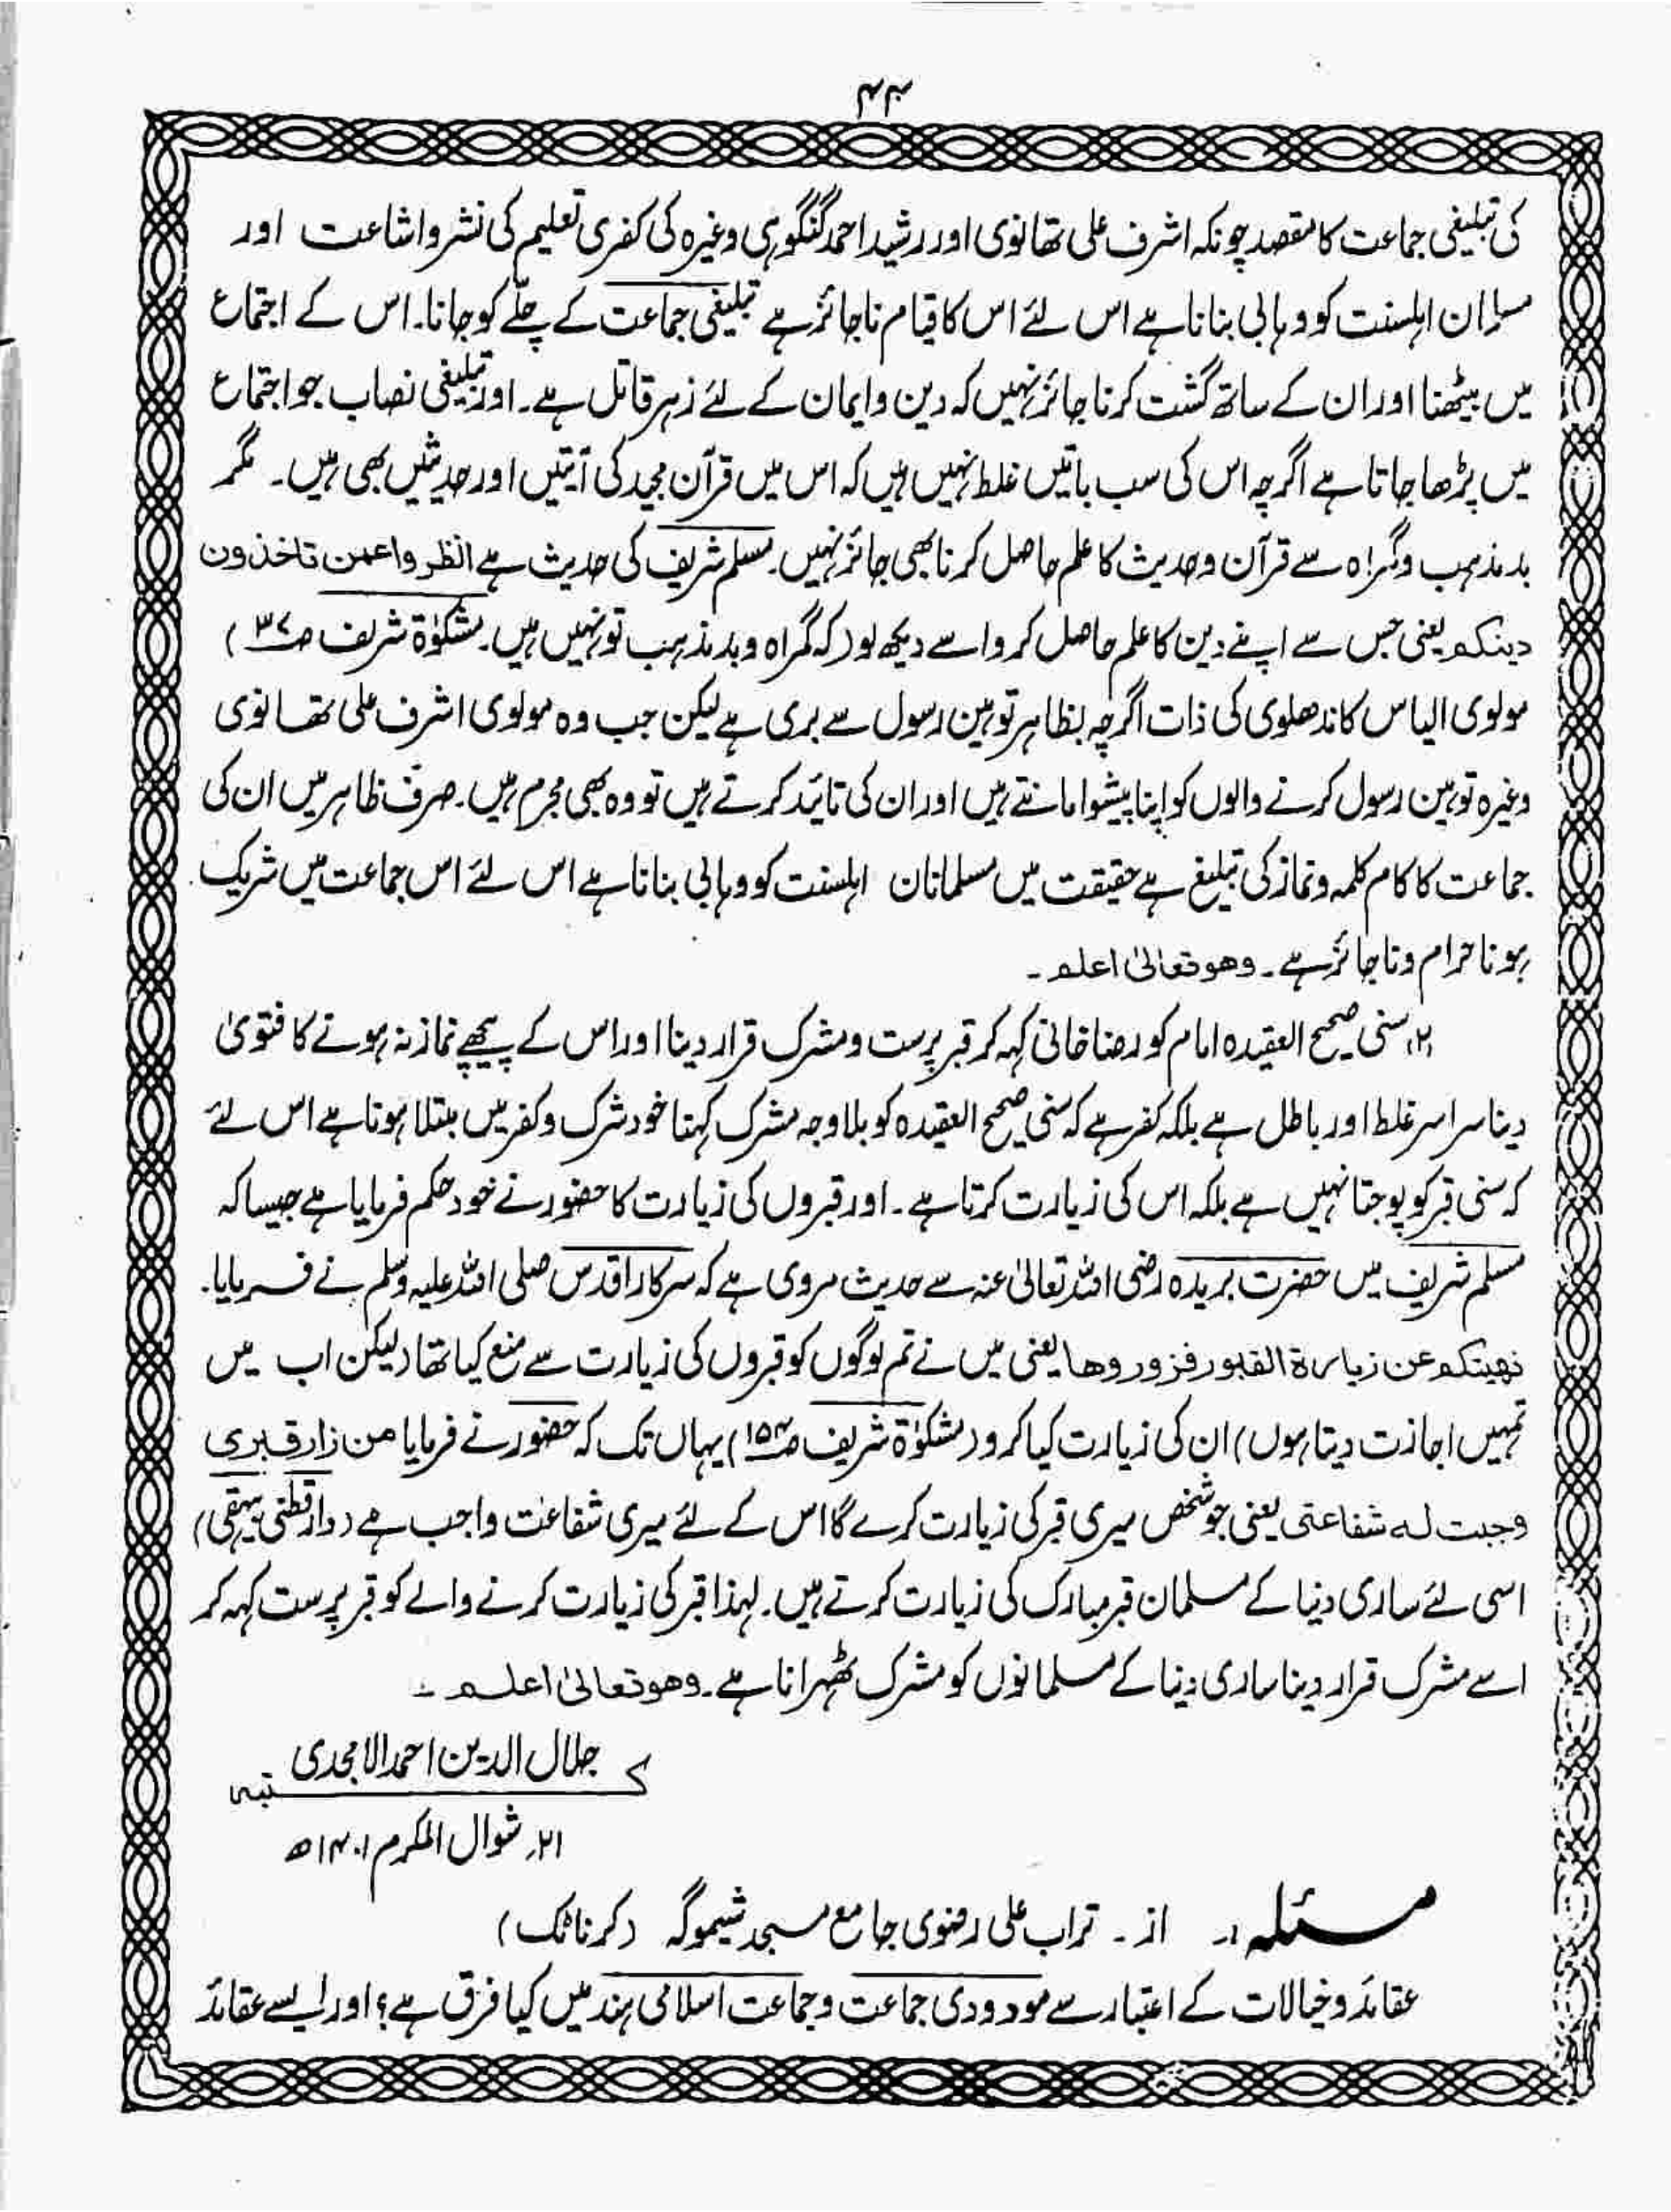 ۴۴
کی تبلیغی جماعت کا مقصد چونکہ اشرف علی تھانوی اور رشید احمد گنگوہی وغیرہ کی کفری تعلیم کی نشر و اشاعت اور
مسلمانان اہلسنت کو وہابی بنانا ہے اس لئے اس کا قیام ناجائز ہے تبلیغی جماعت کے چلّے کو جانا۔ اس کے اجتماع
میں بیٹھنا اور ان کے ساتھ گشت کرنا جائز نہیں کہ دین و ایمان کے لئے زہر قاتل ہے۔ اور تبلیغی نصاب جو اجتماع
میں پڑھا جاتا ہے اگرچہ اس کی سب باتیں غلط نہیں ہیں کہ اس میں قرآن مجید کی آیتیں اور حدیثیں بھی ہیں۔ مگر
بد مذہب و گمراہ سے قرآن و حدیث کا علم حاصل کرنا بھی جائز نہیں۔ مسلم شریف کی حدیث ہے انظر واعمن تاخذون
دینکم یعنی جس سے اپنے دین کا علم حاصل کرو اسے دیکھ لو (کہ گمراہ و بد مذہب تو نہیں ہیں۔ مشکوٰۃ شریف ص۳۷)
مولوی الیاس کاندھلوی کی ذات اگرچہ بظاہر توہین رسول سے بری ہے لیکن جب وہ مولوی اشرف علی تھانوی
وغیرہ توہین رسول کرنے والوں کو اپنا پیشوا مانتے ہیں اور ان کی تائید کرتے ہیں تو وہ بھی مجرم ہیں۔ صرف ظاہر میں ان کی
جماعت کا کام کلمہ و نماز کی تبلیغ ہے حقیقت میں مسلمانان اہلسنت کو وہابی بنانا ہے اس لئے اس جماعت میں شریک
ہونا حرام و ناجائز ہے۔ وھو تعالیٰ اعلم۔
(۲) سنی صحیح العقیدہ امام کو رضا خانی کہہ کر قبر پرست و مشرک قرار دینا اور اس کے پیچھے نماز نہ ہونے کا فتویٰ
دینا سراسر غلط اور باطل ہے بلکہ کفر ہے کہ سنی صحیح العقیدہ کو بلا وجہ مشرک کہنا خود شرک و کفر میں مبتلا ہونا ہے اس لئے
کہ سنی قبر کو پوجتا نہیں ہے بلکہ اس کی زیارت کرتا ہے۔ اور قبروں کی زیارت کا حضور نے خود حکم فرمایا ہے جیسا کہ
مسلم شریف میں حضرت بریدہ رضی اللہ تعالیٰ عنہ سے حدیث مروی ہے کہ سرکار اقدس صلی اللہ علیہ وسلم نے فرمایا۔
نھیتکم عن زیارۃ القبور فزوروھا یعنی میں نے تم لوگوں کو قبروں کی زیارت سے منع کیا تھا (لیکن اب میں
تمہیں اجازت دیتا ہوں) ان کی زیارت کیا کرو (مشکوٰۃ شریف ص۱۵۴) یہاں تک کہ حضور نے فرمایا من زار قبری
وجبت لہ شفاعتی یعنی جو شخص میری قبر کی زیارت کرے گا اس کے لئے میری شفاعت واجب ہے (دار قطنی بیہقی)
اسی لئے ساری دنیا کے مسلمان قبر مبارک کی زیارت کرتے ہیں۔ لہذا قبر کی زیارت کرنے والے کو قبر پرست کہہ کر
اسے مشرک قرار دینا ساری دنیا کے مسلمانوں کو مشرک ٹھہرانا ہے۔ وھو تعالیٰ اعلم۔
کتبہ جلال الدین احمد الامجدی
۲۱ شوال المکرم ۱۴۰۱ھ
مسئلہ:۔ از۔ تراب علی رضوی جامع مسجد شیموگہ (کرناٹک)
عقائد و خیالات کے اعتبار سے مودودی جماعت و جماعت اسلامی ہند میں کیا فرق ہے؟ اور ایسے عقائد